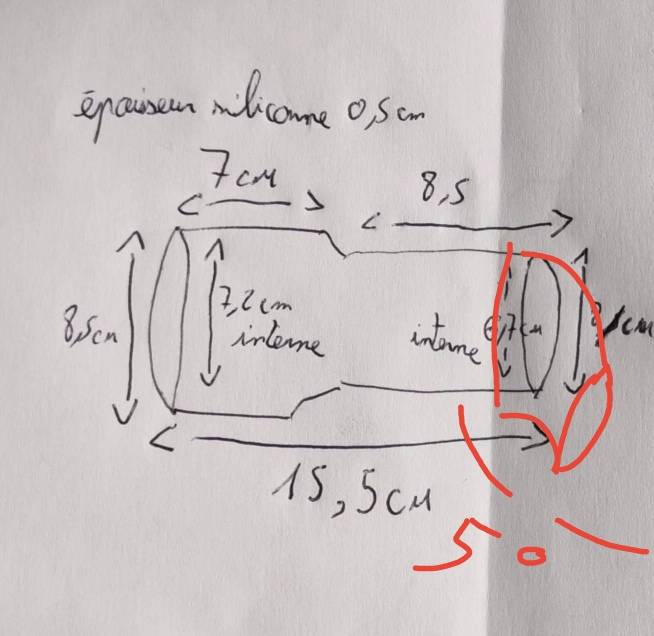 épaisseur siliconne 0,5cm
7cm
8,5
8,5cm
7,2cm
interne
interne
6,7cm
15,5cm
50